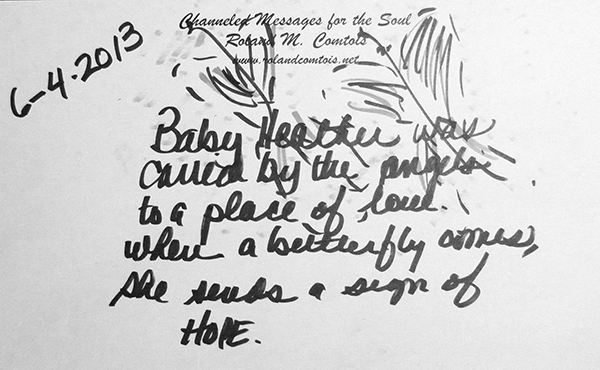 Channeled Messages for the Soul
Roland M. Comtois
www.rolandcomtois.net
6-4-2013
Baby Heather was
carried by the angels
to a place of love.
when a butterfly comes,
she sends a sign of
HOPE.